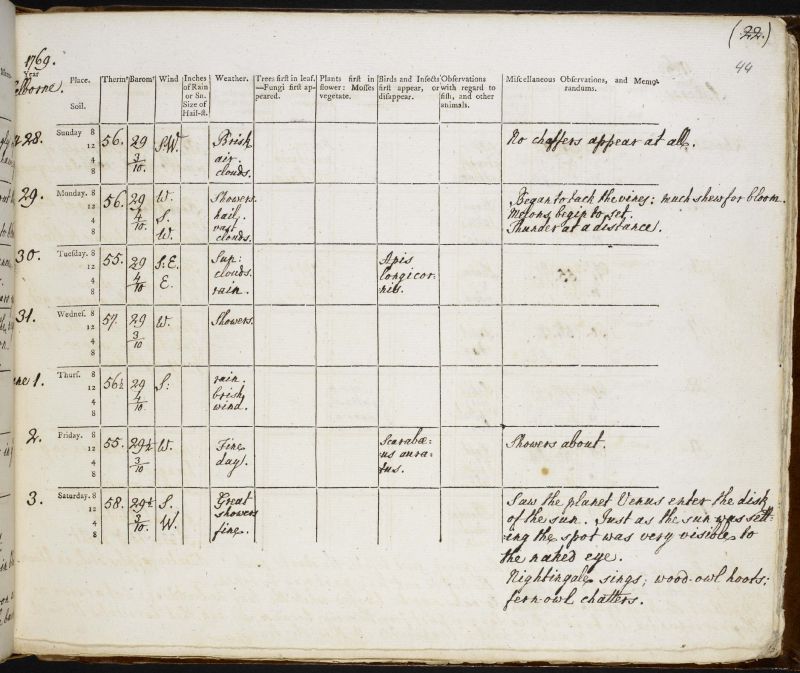 (22.)
44
1769.
Year
Place.
Soil.
Therm.r
Barom.r
Wind
Inches of Rain or Sn. Size of Hail-st.
Weather.
Trees first in leaf. —Fungi first appeared.
Plants first in flower: Mosses vegetate.
Birds and Insects first appear, or disappear.
Observations with regard to fish, and other animals.
Miscellaneous Observations, and Memorandums.
elborne.
28.
Sunday 8
12
4
8
56.
29 3/10.
S.W.
Brisk
air.
clouds.
No chaffers appear at all.
29.
Monday. 8
12
4
8
56.
29 4/10.
W.
S.
W.
Showers.
hail,
vast
clouds.
Began to tack the vines: much shew for bloom.
Melons begin to set.
Thunder at a distance.
30.
Tuesday. 8
12
4
8
55.
29 4/10
S.E.
E.
Sun:
clouds.
rain.
Apis
longicor-
nis.
31.
Wednes. 8
12
4
8
57.
29 3/10
W.
Showers.
ne 1.
Thurs. 8
12
4
8
56½
29 4/10.
S:
rain.
brisk
wind.
2.
Friday. 8
12
4
8
55.
29½ 3/10
W.
Fine
day.
Scarabæ=
us aura=
tus.
Showers about.
3.
Saturday. 8
12
4
8
58.
29½ 3/10.
S.
W.
Great
showers
fine.
Saw the planet Venus enter the disk
of the sun. Just as the sun was sett-
ing the spot was very visible to
the naked eye.
Nightingale sings; wood-owl hoots;
fern-owl chatters.